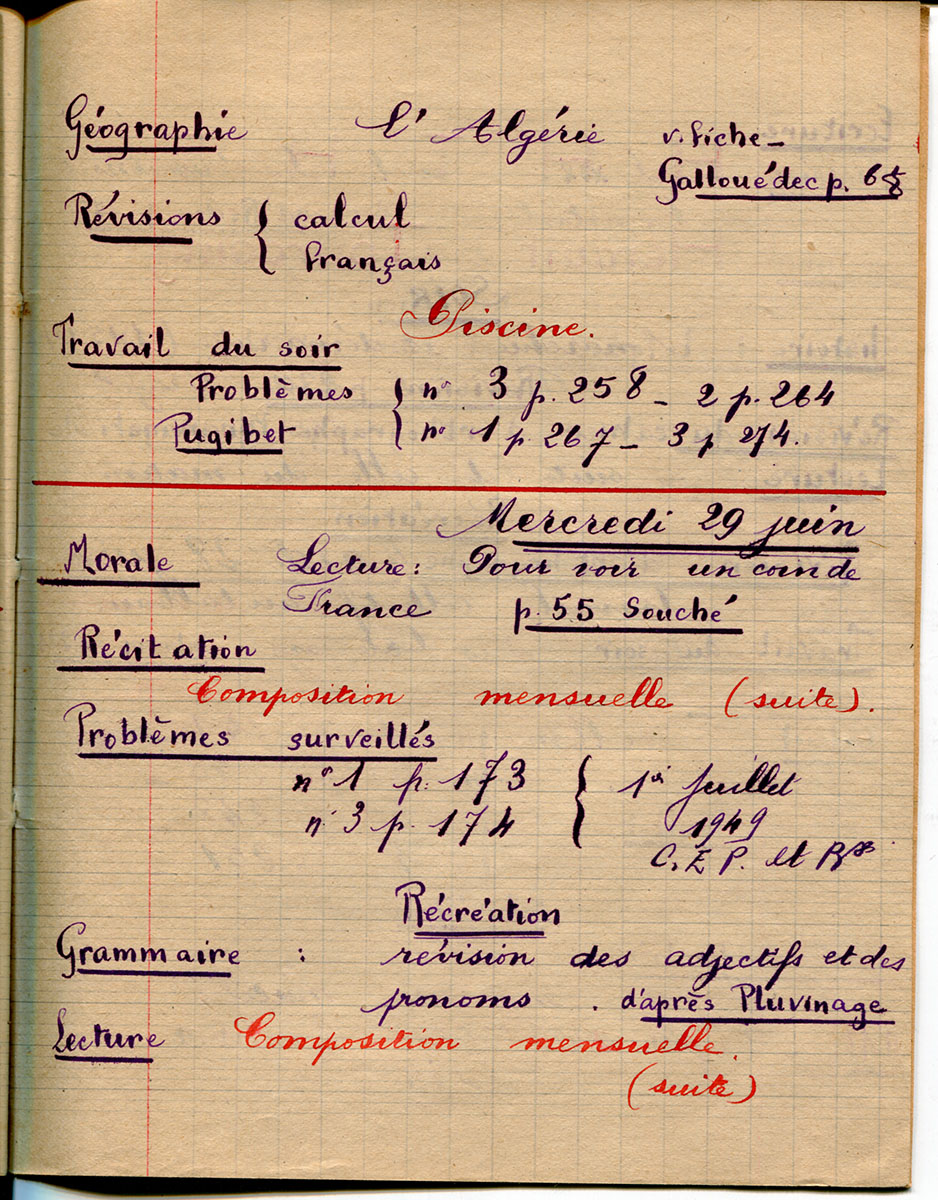 Géographie L'Algérie v. fiche -
Gallouédec p.
Révisions { calcul
français
Piscine.
Travail du soir
Problèmes { n° 3 p. 258 - 2 p. 264
Pugibet n° 1 p 267 - 3 p 274.
Mercredi 29 juin
Morale Lecture : Pour voir un coin de
France p. 55 Souché
Récitation
Composition mensuelle (suite).
Problèmes surveillés
n° 1 p. 173 } 1er Juillet
n° 3 p. 174 1949
C. E. P. et
Récréation
Grammaire : révision des adjectifs et des
pronoms . d'après Pluvinage
Lecture Composition mensuelle.
(suite)